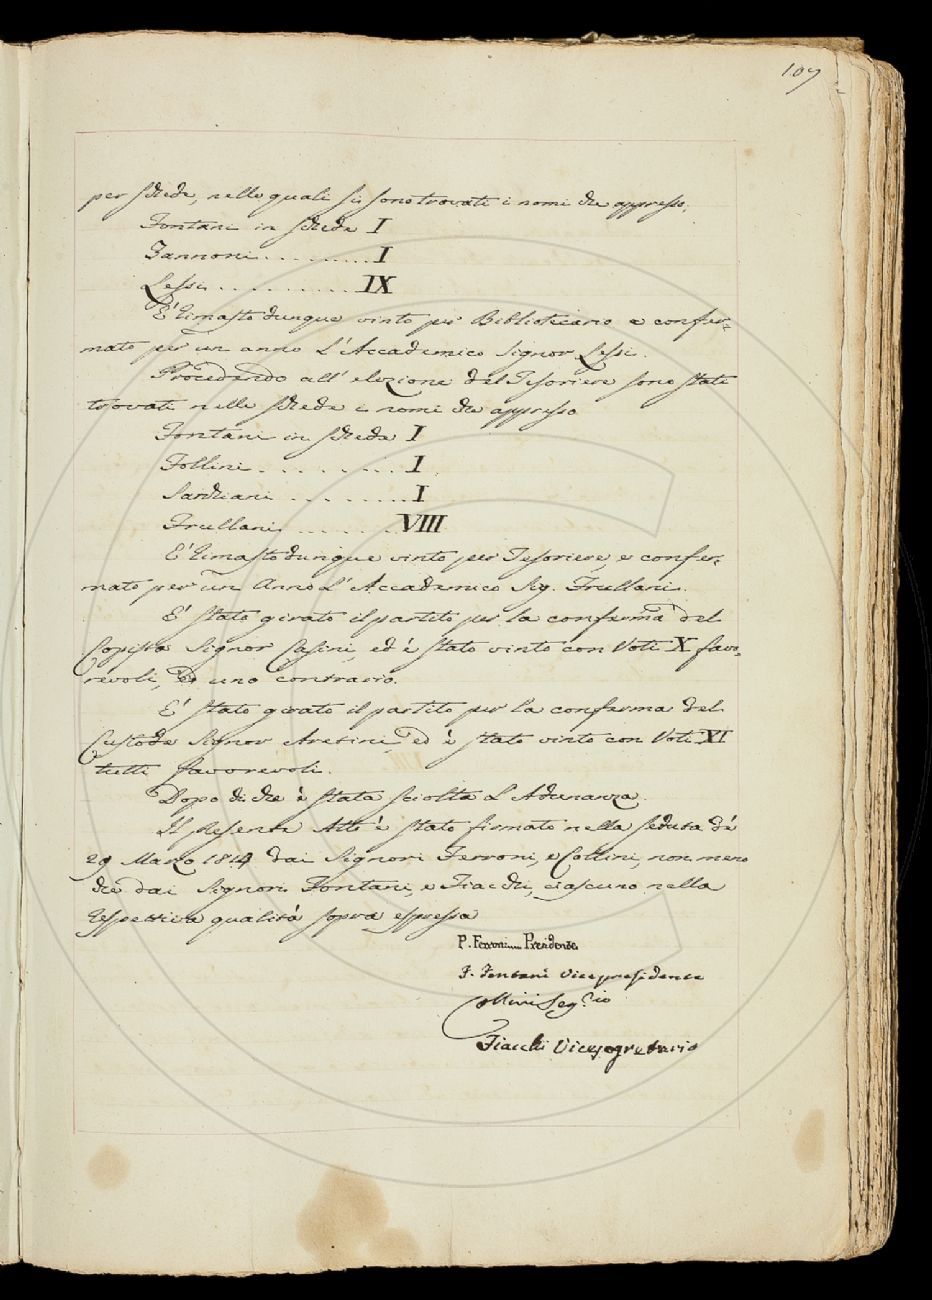 107
per schede, nelle quali si sono trovati i nomi che appresso.
Fontani in scheda I
Zannoni . . . . . . . . . I
Lessi . . . . . . . . . . . IX
E' rimasto dunque vinto per Bibliotecario e confer=
mato per un anno L'Accademico Signor Lessi.
Procedendo all' elezione del Tesoriere sono stati
trovati nelle schede i nomi che appresso
Fontani in scheda I
Follini . . . . . . . . . I
Sarchiani . . . . . . . . I
Frullani . . . . . . . VIII
E' rimasto dunque vinto per Tesoriere, e confer=
mato per un Anno L' Accademico Sig. Frullani.
E' stato girato il partito per la conferma del
Copista Signor Casini, ed è stato vinto con Voti X favo=
revoli, ed uno contrario.
E' stato girato il partito per la conferma del
Custode Signor Aretini ed è stato vinto con Voti XI
tutti favorevoli.
Dopo di che è stata sciolta L'Adunanza.
Il presente Atto è stato firmato nella seduta de'
29 Marzo 1814 dai Signori Ferroni, e Collini, non meno
che dai Signori Fontani, e Fiacchi, ciascuno nella
respettiva qualità sopra espressa
P. Ferroni Presidente
F. Fontani Vicepresidente
Collini Seg.rio
Fiacchi Vicesegretario